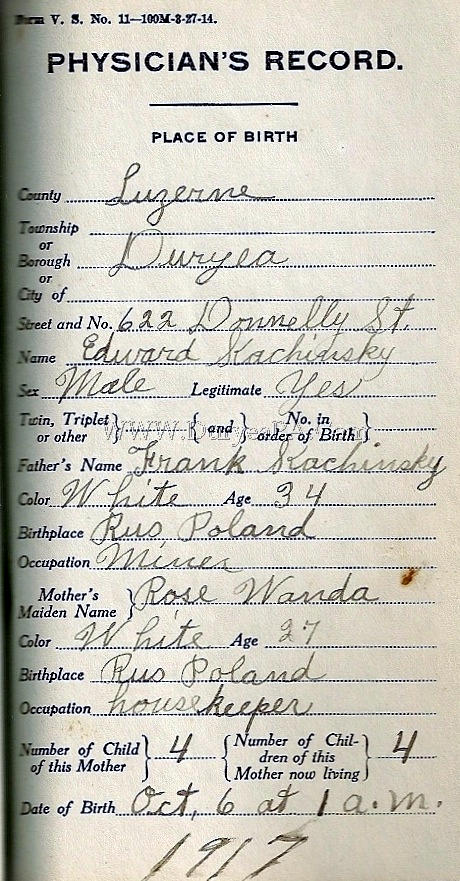 Form V. S. No. 11—100M-3-27-14.
PHYSICIAN'S RECORD.
PLACE OF BIRTH
County Luzerne
Township
or
Borough Duryea
or
City of
Street and No. 622 Donnelly St.
Name Edward Kachinsky
Sex Male Legitimate Yes
Twin, Triplet or other } { and } No. in order of Birth }
www.DuryeaPA.com
Father's Name Frank Kachinsky
Color White Age 34
Birthplace Rus Poland
Occupation Miner
Mother's Maiden Name } Rose Wanda
Color White Age 27
Birthplace Rus Poland
Occupation housekeeper
Number of Child of this Mother } 4 { Number of Chil-
dren of this
Mother now living } 4
Date of Birth Oct, 6 at 1 a.m.
1917